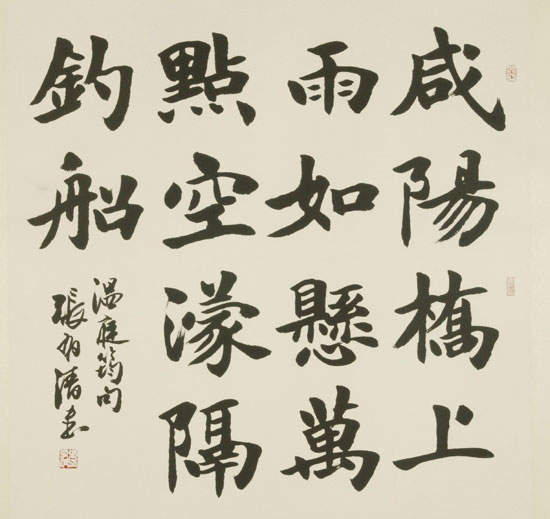 咸陽橋上
雨如懸萬
點空濛隔
釣船
温庭筠句
張有清書